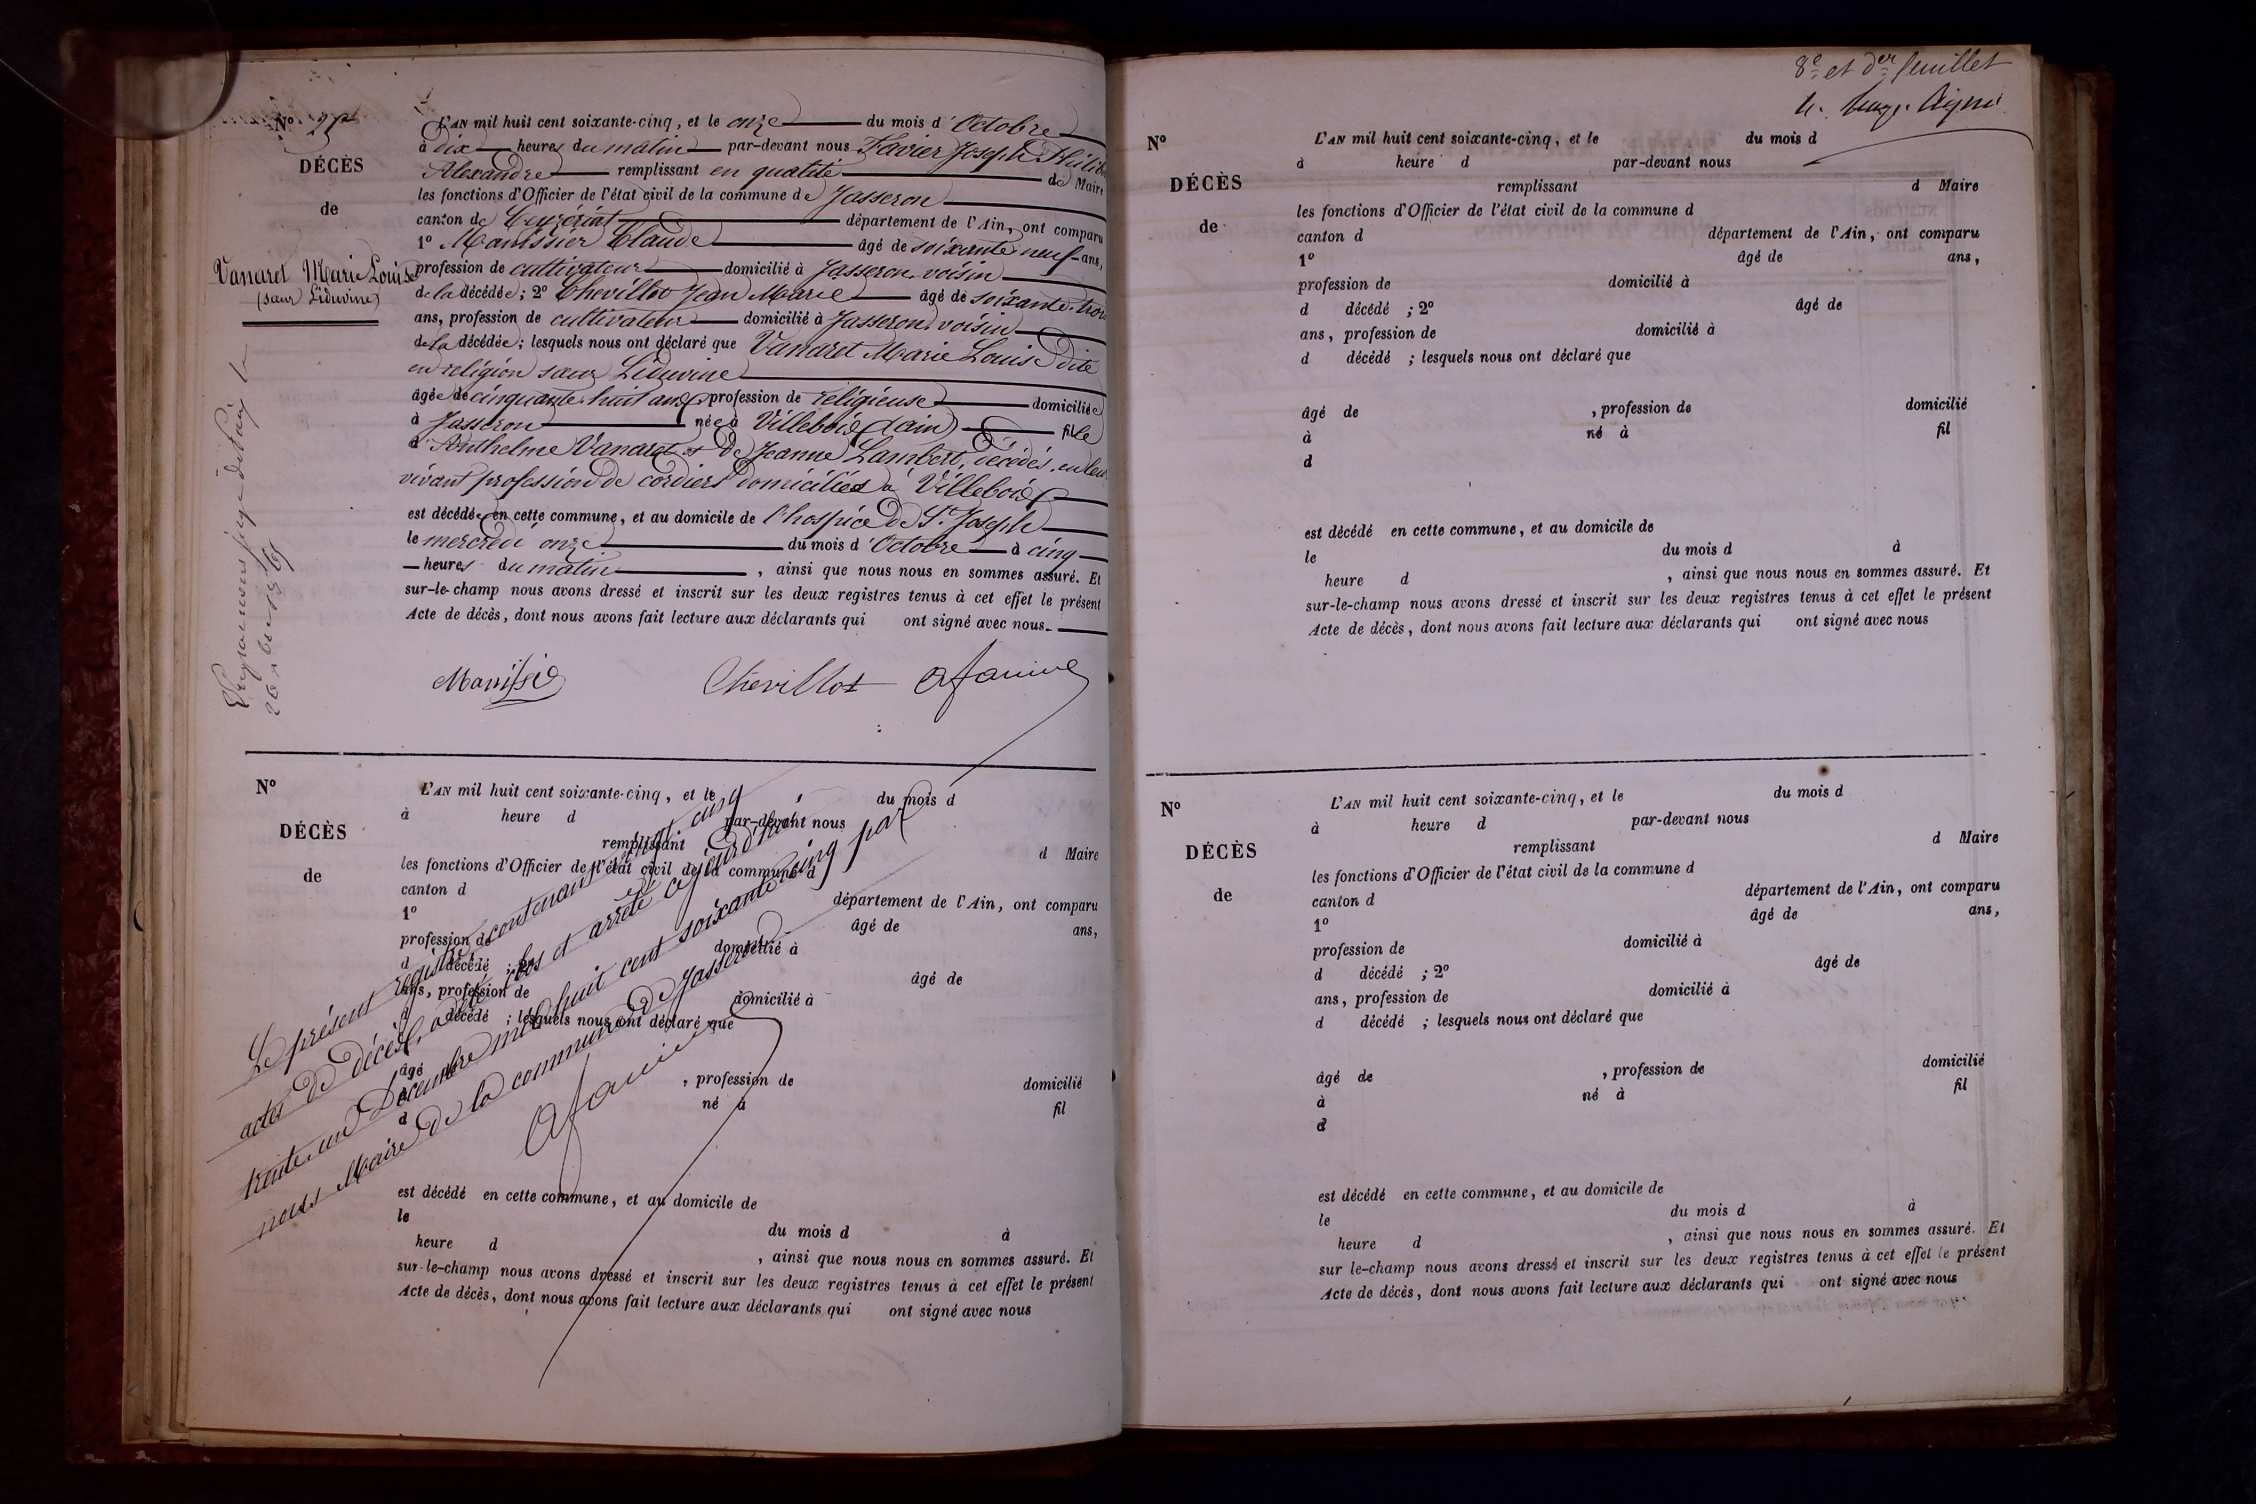 Nº 25
DÉCÈS
de
Vanaret Marie Louise
(sœur Liduvine)
L'AN mil huit cent soixante-cinq, et le onze du mois d'Octobre
à dix heures du matin par-devant nous Favier Joseph
Alexandre remplissant en qualité de Maire
les fonctions d'Officier de l'état civil de la commune de Jasseron
canton de Ceyzériat département de l'Ain, ont comparu
1º Manissier Claude âgé de soixante neuf ans,
profession de cultivateur domicilié à Jasseron voisin
de la décédée; 2º Chevillot Jean Marie âgé de soixante-trois
ans, profession de cultivateur domicilié à Jasseron voisin
de la décédée; lesquels nous ont déclaré que Vanaret Marie Louise dite
en religion sœur Liduvine
âgée de cinquante-huit ans profession de religieuse domiciliée
à Jasseron née à Villebois (ain) fille
d'Anthelme Vanaret et de Jeanne Lambert, décédés, en leur
vivant profession de cordiers domiciliés à Villebois
est décédée en cette commune, et au domicile de l'hospice de St. Joseph
le mercredi onze du mois d'Octobre à cinq
heures du matin, ainsi que nous nous en sommes assuré. Et
sur-le-champ nous avons dressé et inscrit sur les deux registres tenus à cet effet le présent
Acte de décès, dont nous avons fait lecture aux déclarants qui ont signé avec nous.
Manissié Chevillot
Nº
DÉCÈS
de
L'AN mil huit cent soixante-cinq, et le du mois d
à heure d par-devant nous
remplissant d Maire
les fonctions d'Officier de l'état civil de la commune d
canton d département de l'Ain, ont comparu
1º âgé de ans,
profession de domicilié à
d décédé ; 2º âgé de
ans, profession de domicilié à
d décédé ; lesquels nous ont déclaré que
âgé de , profession de domicilié
à né à fil
d
est décédé en cette commune, et au domicile de
le du mois d à
heure d , ainsi que nous nous en sommes assuré. Et
sur-le-champ nous avons dressé et inscrit sur les deux registres tenus à cet effet le présent
Acte de décès, dont nous avons fait lecture aux déclarants qui ont signé avec nous
Le présent registre contenant vingt cinq
actes de décès, a été clos et arrêté ce jourd'hui
trente un Décembre mil huit cent soixante cinq par
nous Maire de la commune de Jasseron
8e et der feuillet
Nº
DÉCÈS
de
L'AN mil huit cent soixante-cinq, et le du mois d
à heure d par-devant nous
remplissant d Maire
les fonctions d'Officier de l'état civil de la commune d
canton d département de l'Ain, ont comparu
1º âgé de ans,
profession de domicilié à
d décédé ; 2º âgé de
ans, profession de domicilié à
d décédé ; lesquels nous ont déclaré que
âgé de , profession de domicilié
à né à fil
d
est décédé en cette commune, et au domicile de
le du mois d à
heure d , ainsi que nous nous en sommes assuré. Et
sur-le-champ nous avons dressé et inscrit sur les deux registres tenus à cet effet le présent
Acte de décès, dont nous avons fait lecture aux déclarants qui ont signé avec nous
Nº
DÉCÈS
de
L'AN mil huit cent soixante-cinq, et le du mois d
à heure d par-devant nous
remplissant d Maire
les fonctions d'Officier de l'état civil de la commune d
canton d département de l'Ain, ont comparu
1º âgé de ans,
profession de domicilié à
d décédé ; 2º âgé de
ans, profession de domicilié à
d décédé ; lesquels nous ont déclaré que
âgé de , profession de domicilié
à né à fil
d
est décédé en cette commune, et au domicile de
le du mois d à
heure d , ainsi que nous nous en sommes assuré. Et
sur le-champ nous avons dressé et inscrit sur les deux registres tenus à cet effet le présent
Acte de décès, dont nous avons fait lecture aux déclarants qui ont signé avec nous